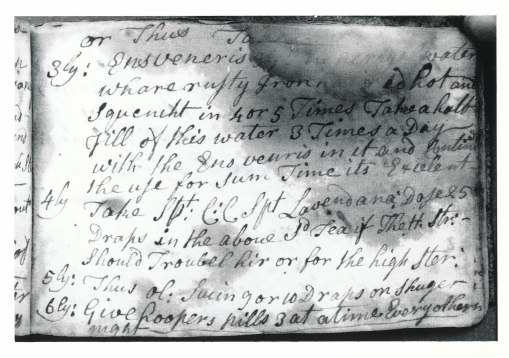 or Thus Ta
3ly: Ens veneris water
whare rusty Iron ed hot and
Squencht in 4 or 5 Times Take a half
Jill of this water 3 Times a Day
with the Ens veneris in it and
the use for Sum Time its Excelent
4ly Take Spt. C:C Spt Lavendana Dose 25
Draps in the above Tea if Theth Ste:
Should Troubel hir or for the high Ster:
5ly: Thus ol: 9 or 10 Draps on Shuger
6ly: Give hoopers pills 3 at a time Every other
night